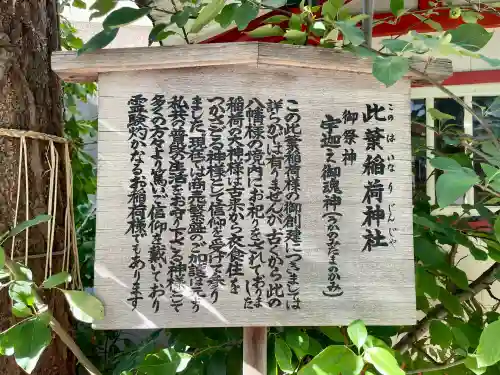 此葉稲荷神社
このはいなりじんじゃ
御祭神
宇迦之御魂神(うかのみたまのかみ)
この此葉稲荷様の御創建につきましては
詳らかでは有りませんが古くから此の
八幡様の境内にお祀りされておりま
稲荷の大神様は古来から衣食住を
つかさどる神様として信仰を受けて参り
ました現在では商元繁盛のご加護はより
私共の普段の生活をお守り下さる神様として
多くの方々より篤いご信仰を戴いており
霊験灼かなるお稲荷様でもあります